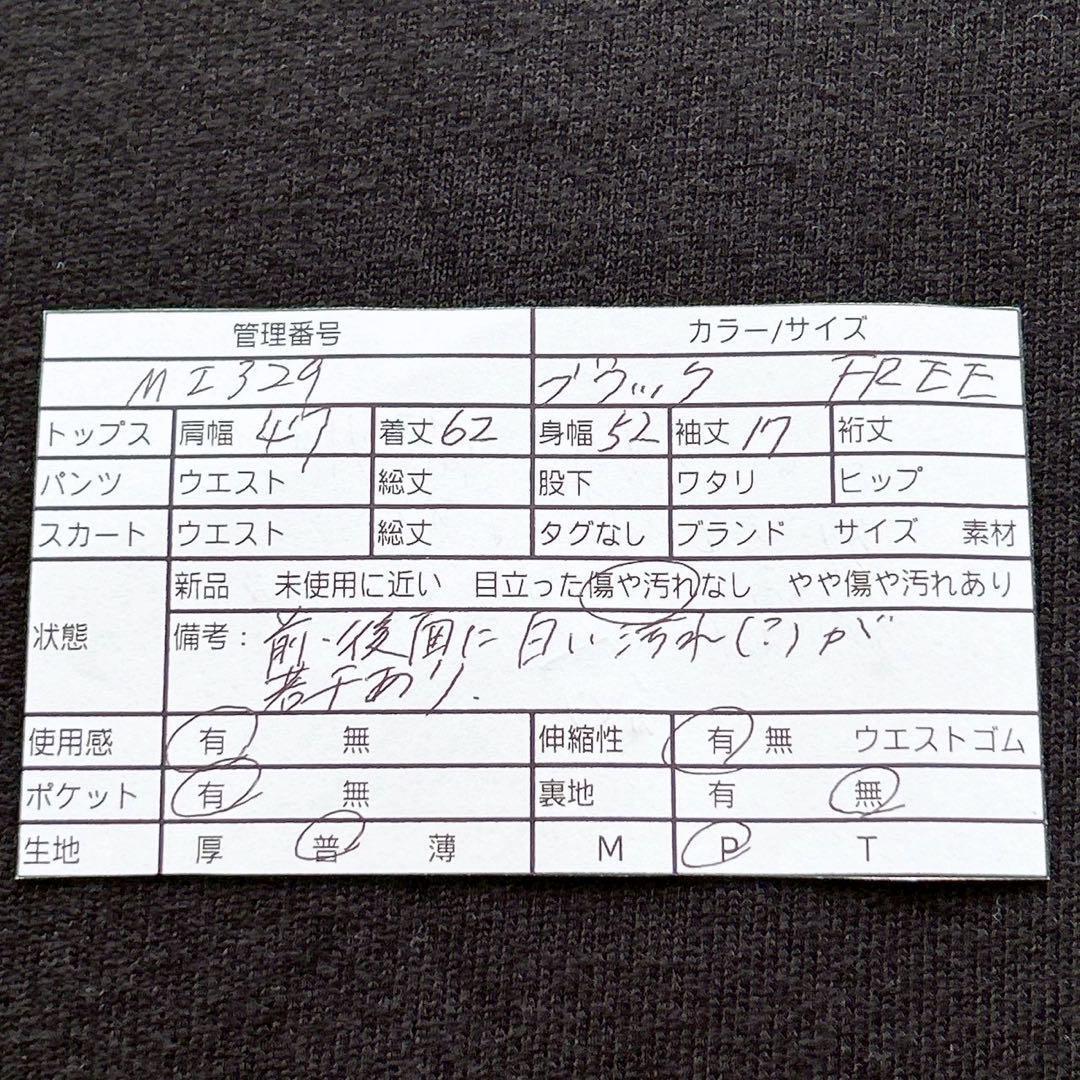 管理番号 カラー/サイズ
MI329 ブラック FREE
トップス 肩幅 47 着丈 62 身幅 52 袖丈 17 裄丈
パンツ ウエスト 総丈 股下 ワタリ ヒップ
スカート ウエスト 総丈 タグなし ブランド サイズ 素材
状態 新品 未使用に近い 目立った傷や汚れなし やや傷や汚れあり
備考：前・後面に白い汚れ(?)が
若干あり.
使用感 有 無 伸縮性 有 無 ウエストゴム
ポケット 有 無 裏地 有 無
生地 厚 普 薄 M P T